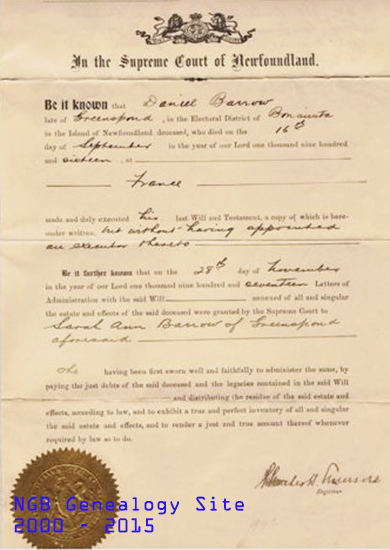 In the Supreme Court of Newfoundland.
Be it known that Daniel Barrow
late of Greenspond, in the Electoral District of Bonavista
in the Island of Newfoundland deceased, who died on the 16th
day of September in the year of our Lord one thousand nine hundred
and sixteen, at
France
made and duly executed his last Will and Testament, a copy of which is here-
under written, but without having appointed
an executor thereto
Be it further known that on the 28th day of November
in the year of our Lord one thousand nine hundred and seventeen Letters of
Administration with the said Will annexed of all and singular
the estate and effects of the said deceased were granted by the Supreme Court to
Sarah Ann Barrow of Greenspond
aforesaid
She having been first sworn well and faithfully to administer the same, by
paying the just debts of the said deceased and the legacies contained in the said Will
and distributing the residue of the said estate and
effects, according to law, and to exhibit a true and perfect inventory of all and singular
the said estate and effects, and to render a just and true account thereof whenever
required by law so to do.
Registrar.
NGB Genealogy Site
2000 - 2015